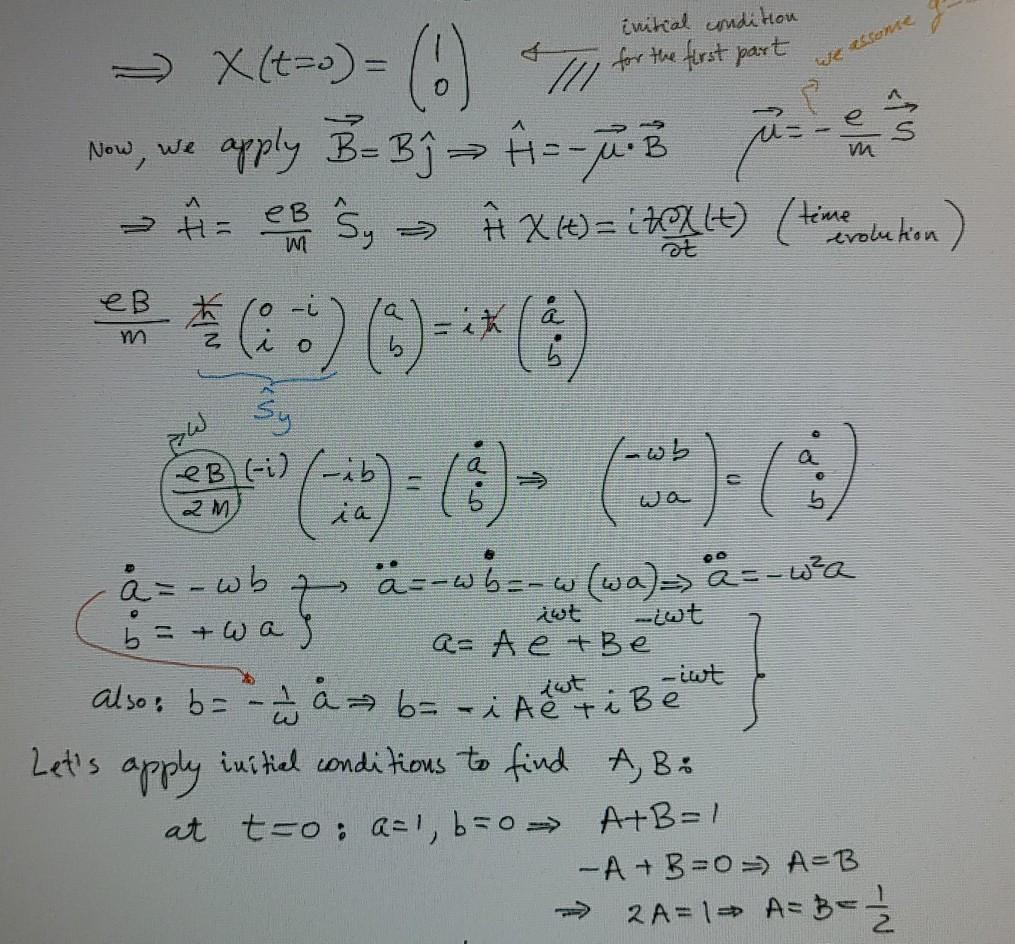 ⇒ X(t=0) = (1 0) ⟸ /// initial condition for the first part
we assume g
Now, we apply B⃗ = B ĵ ⇒ Ĥ = -μ⃗·B⃗ μ⃗ = - e/m Ŝ⃗
⇒ Ĥ = eB/m Ŝy ⇒ Ĥ X(t) = iħ ∂X(t)/∂t (time evolution)
eB/m ħ/2 (0 -i; i 0) (a b) = iħ (ȧ ḃ)
Ŝy
ω
eB/2m (-i) (-ib ia) = (ȧ ḃ) ⇒ (-ωb ωa) = (ȧ ḃ)
ȧ = -ωb } → ä = -ωḃ = -ω(ωa) ⇒ ä = -ω²a
ḃ = +ωa } a = A e^{iωt} + B e^{-iωt}
also: b = -1/ω ȧ ⇒ b = -i A e^{iωt} + i B e^{-iωt}
Let's apply initial conditions to find A, B:
at t=0: a=1, b=0 ⇒ A+B=1
-A+B=0 ⇒ A=B
⇒ 2A=1 ⇒ A=B=1/2